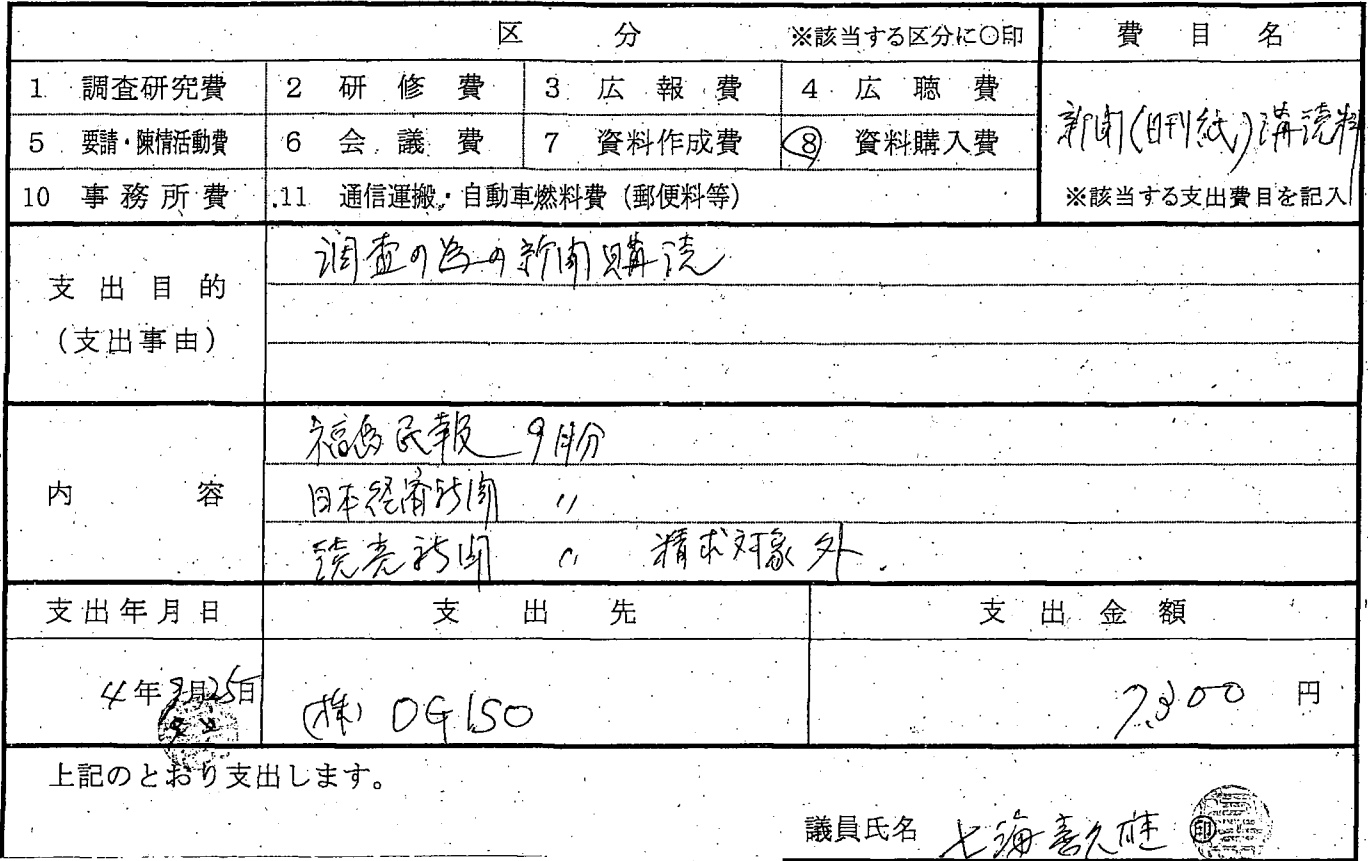 区 分 ※該当する区分に○印 費 目 名
1 調査研究費 2 研 修 費 3 広 報 費 4 広 聴 費
新聞(日刊紙)購読料
5 要請・陳情活動費 6 会 議 費 7 資料作成費 8 資料購入費
10 事 務 所 費 11 通信運搬・自動車燃料費(郵便料等) ※該当する支出費目を記入
調査の為の新聞購読
支 出 目 的
(支出事由)
福島民報 9月分
内 容 日本経済新聞 〃
読売新聞 〃 請求対象外
支出年月日 支 出 先 支 出 金 額
4年 月25日 (株) OGISO 7300 円
上記のとおり支出します。
議員氏名 七海喜久雄 印